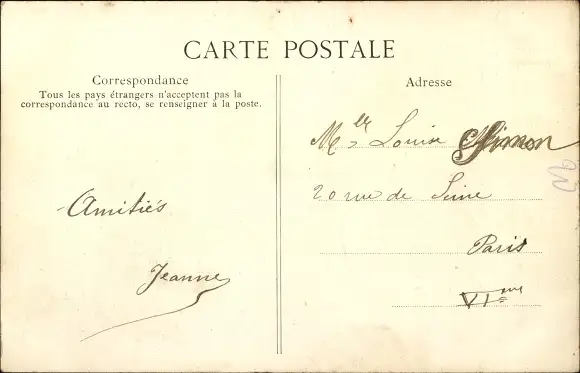 CARTE POSTALE
Correspondance
Tous les pays étrangers n'acceptent pas la
correspondance au recto, se renseigner à la poste.
Adresse
Mlle Louise Simon
20 rue de Seine
Paris
VIme
Amitiés
Jeanne